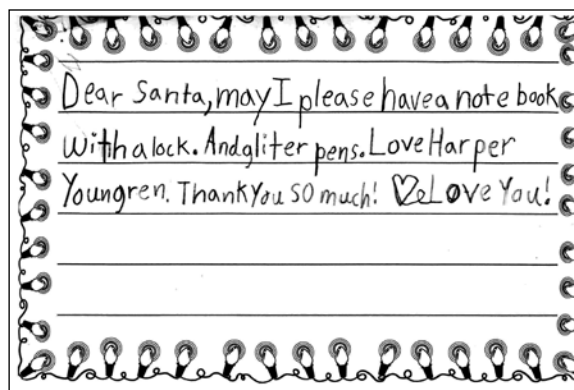 Dear Santa, may I please have a note book
with a lock. And gliter pens. Love Harper
Youngren. Thank You so much! We Love You!